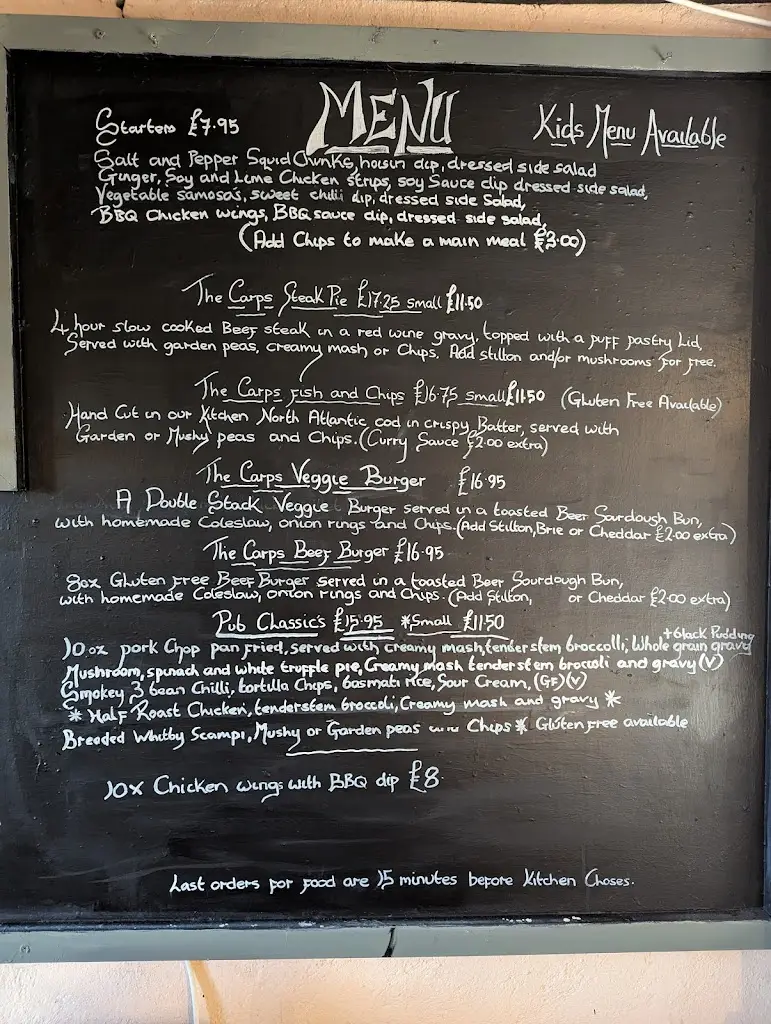 MENU
Starters £7.95
Kids Menu Available
Salt and Pepper Squid Chunks, hoisin dip, dressed side salad
Ginger, Soy and Lime Chicken strips, soy Sauce dip dressed side salad,
Vegetable samosa's, sweet chilli dip, dressed side Salad,
BBQ Chicken wings, BBQ sauce dip, dressed side salad,
(Add Chips to make a main meal £3.00)
The Carps Steak Pie £17.25 small £11.50
4 hour slow cooked Beef steak in a red wine gravy, topped with a puff pastry Lid,
Served with garden peas, creamy mash or Chips. Add stilton and/or mushrooms for free.
The Carps fish and Chips £16.75 small £11.50 (Gluten Free Available)
Hand Cut in our Kitchen North Atlantic cod in crispy Batter, served with
Garden or Mushy peas and Chips. (Curry Sauce £2.00 extra)
The Carps Veggie Burger £16.95
A Double Stack Veggie Burger served in a toasted Beer Sourdough Bun,
with homemade Coleslaw, onion rings and Chips. (Add Stilton, Brie or Cheddar £2.00 extra)
The Carps Beef Burger £16.95
8oz Gluten Free Beef Burger served in a toasted Beer Sourdough Bun,
with homemade Coleslaw, onion rings and Chips. (Add Stilton, or Cheddar £2.00 extra)
Pub Classic's £15.95 *Small £11.50
+ black Pudding
10oz pork Chop pan fried, served with creamy mash, tenderstem broccolli, Whole grain gravy
Mushroom, spinach and white truffle pie, Creamy mash tenderstem broccoli and gravy (V)
Smokey 3 bean Chilli, tortilla Chips, basmati rice, Sour Cream, (GF) (V)
* Half Roast Chicken, tenderstem broccoli, Creamy mash and gravy *
Breaded Whitby Scampi, Mushy or Garden peas and Chips * Gluten free available
10x Chicken wings with BBQ dip £8
Last orders for food are 15 minutes before Kitchen Closes.